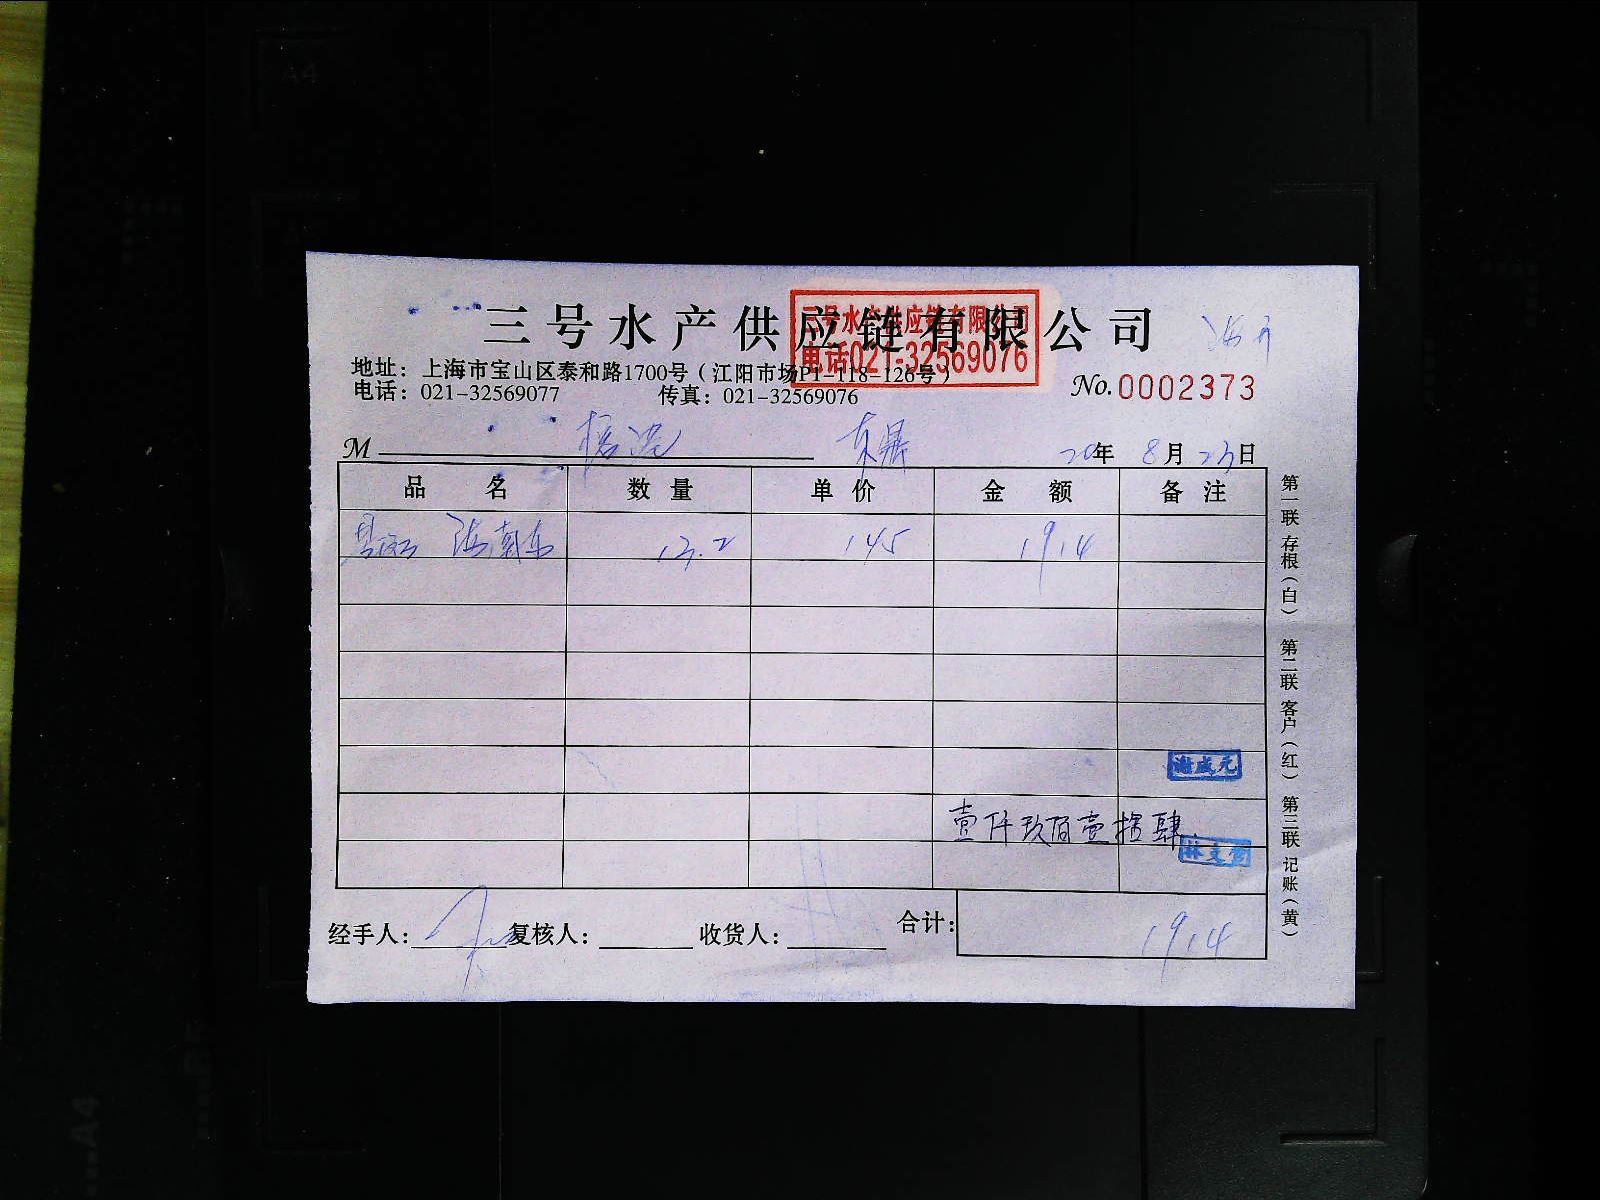 三号水产供应链有限公司
三号水产供应链有限公司
电话021-32569076
地址：上海市宝山区泰和路1700号（江阳市场P1-118-126号）
电话：021-32569077 传真：021-32569076
No.0002373
M
20年 8月 23日
品名 数量 单价 金额 备注
13.2 145 1914
壹仟玖佰壹拾肆
经手人： 复核人： 收货人： 合计：1914
第一联 存根（白） 第二联 客户（红） 第三联 记账（黄）
A4
A4